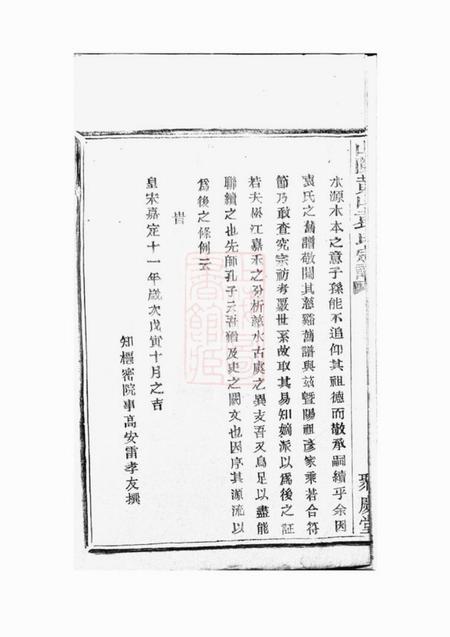 水源木本之意子孫能不追仰其祖德而敬承嗣續乎余因
袁氏之舊譜敬閱其慈谿舊譜與茲暨陽祖彥家乘若合符
節乃敢查究宗祊考覈世系故取其易知嫡派以爲後之証
若夫松江嘉禾之分析慈水古虞之異支吾又烏足以盡能
聯續之也先師孔子云吾猶及史之闕文也因序其源流以
爲後之條例云
旹
皇宋嘉定十一年歲次戊寅十月之吉
知樞密院事高安雷孝友撰
聚慶堂